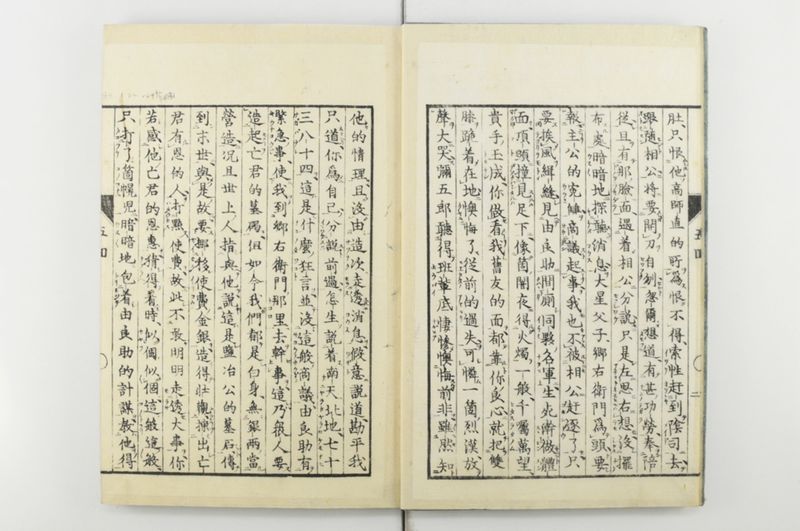 肚只恨他高師直的所為恨不得索性赶到陰司去
跟隨相公將要開刀自刎忽爾想道有甚功勞奉
從且有那臉面過着相公分說只是左思右想沒擺
布處暗暗地探聽消息大星父子鄉右衛門為頭要
報主公的寃讎商議起事我也不被相公赶逐了只
要挨風緝縫見由良助間廁同夥為重生
面項頭撞見足下像箇闇夜得火燭一般千萬望
貴手玉成你做看我舊友的面都靠你良心就把雙
膝跪着在地懊悔了從前的過失可憐一箇烈漢放
聲大哭彌五郎聽得班
悽慘懊悔前非雖然知
他的情理且沒由造次走透消息假意說道勘平我
只道你為自己分說前過怎生說着南天北地七十
三八十四這是什麼狂言並沒這般商議由良助有
緊急事使我到鄉右衛門那里去幹事這乃衆人要
造起亡君的墓碣但如今我們都是白身無銀兩當
營造况且世上人指與他說這是鹽冶公的墓石傳
到末世與是故要挪移使費金銀造得壯觀揮出亡
君有恩的人打點使費故此不敢明明走透大事你
若感他亡君的恩惠猜得着時似個似個這般這般
只打了箇幌兒暗暗地包着由良助的計謀教他得
五